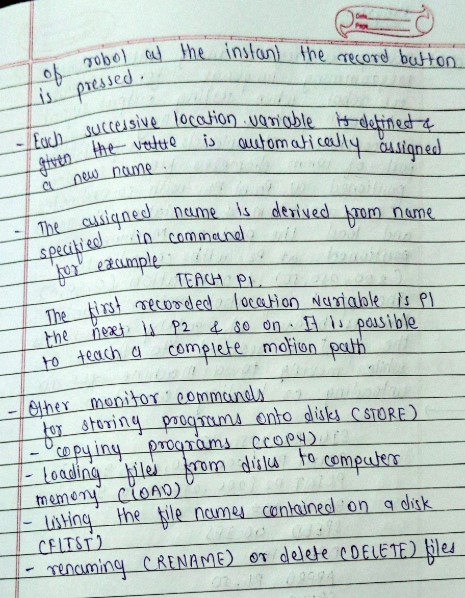 Date
of robot at the instant the record button
is pressed.
- Each successive location variable is defined &
given the value is automatically assigned
a new name.
- The assigned name is derived from name
specified in command
for example
TEACH P1.
The first recorded location variable is P1
the next is P2 & so on. It is possible
to teach a complete motion path
- Other monitor commands
for storing programs onto disks (STORE)
- copying programs (COPY)
- loading files from disks to computer
memory (LOAD)
- listing the file names contained on a disk
(FLIST)
- renaming (RENAME) or delete (DELETE) files